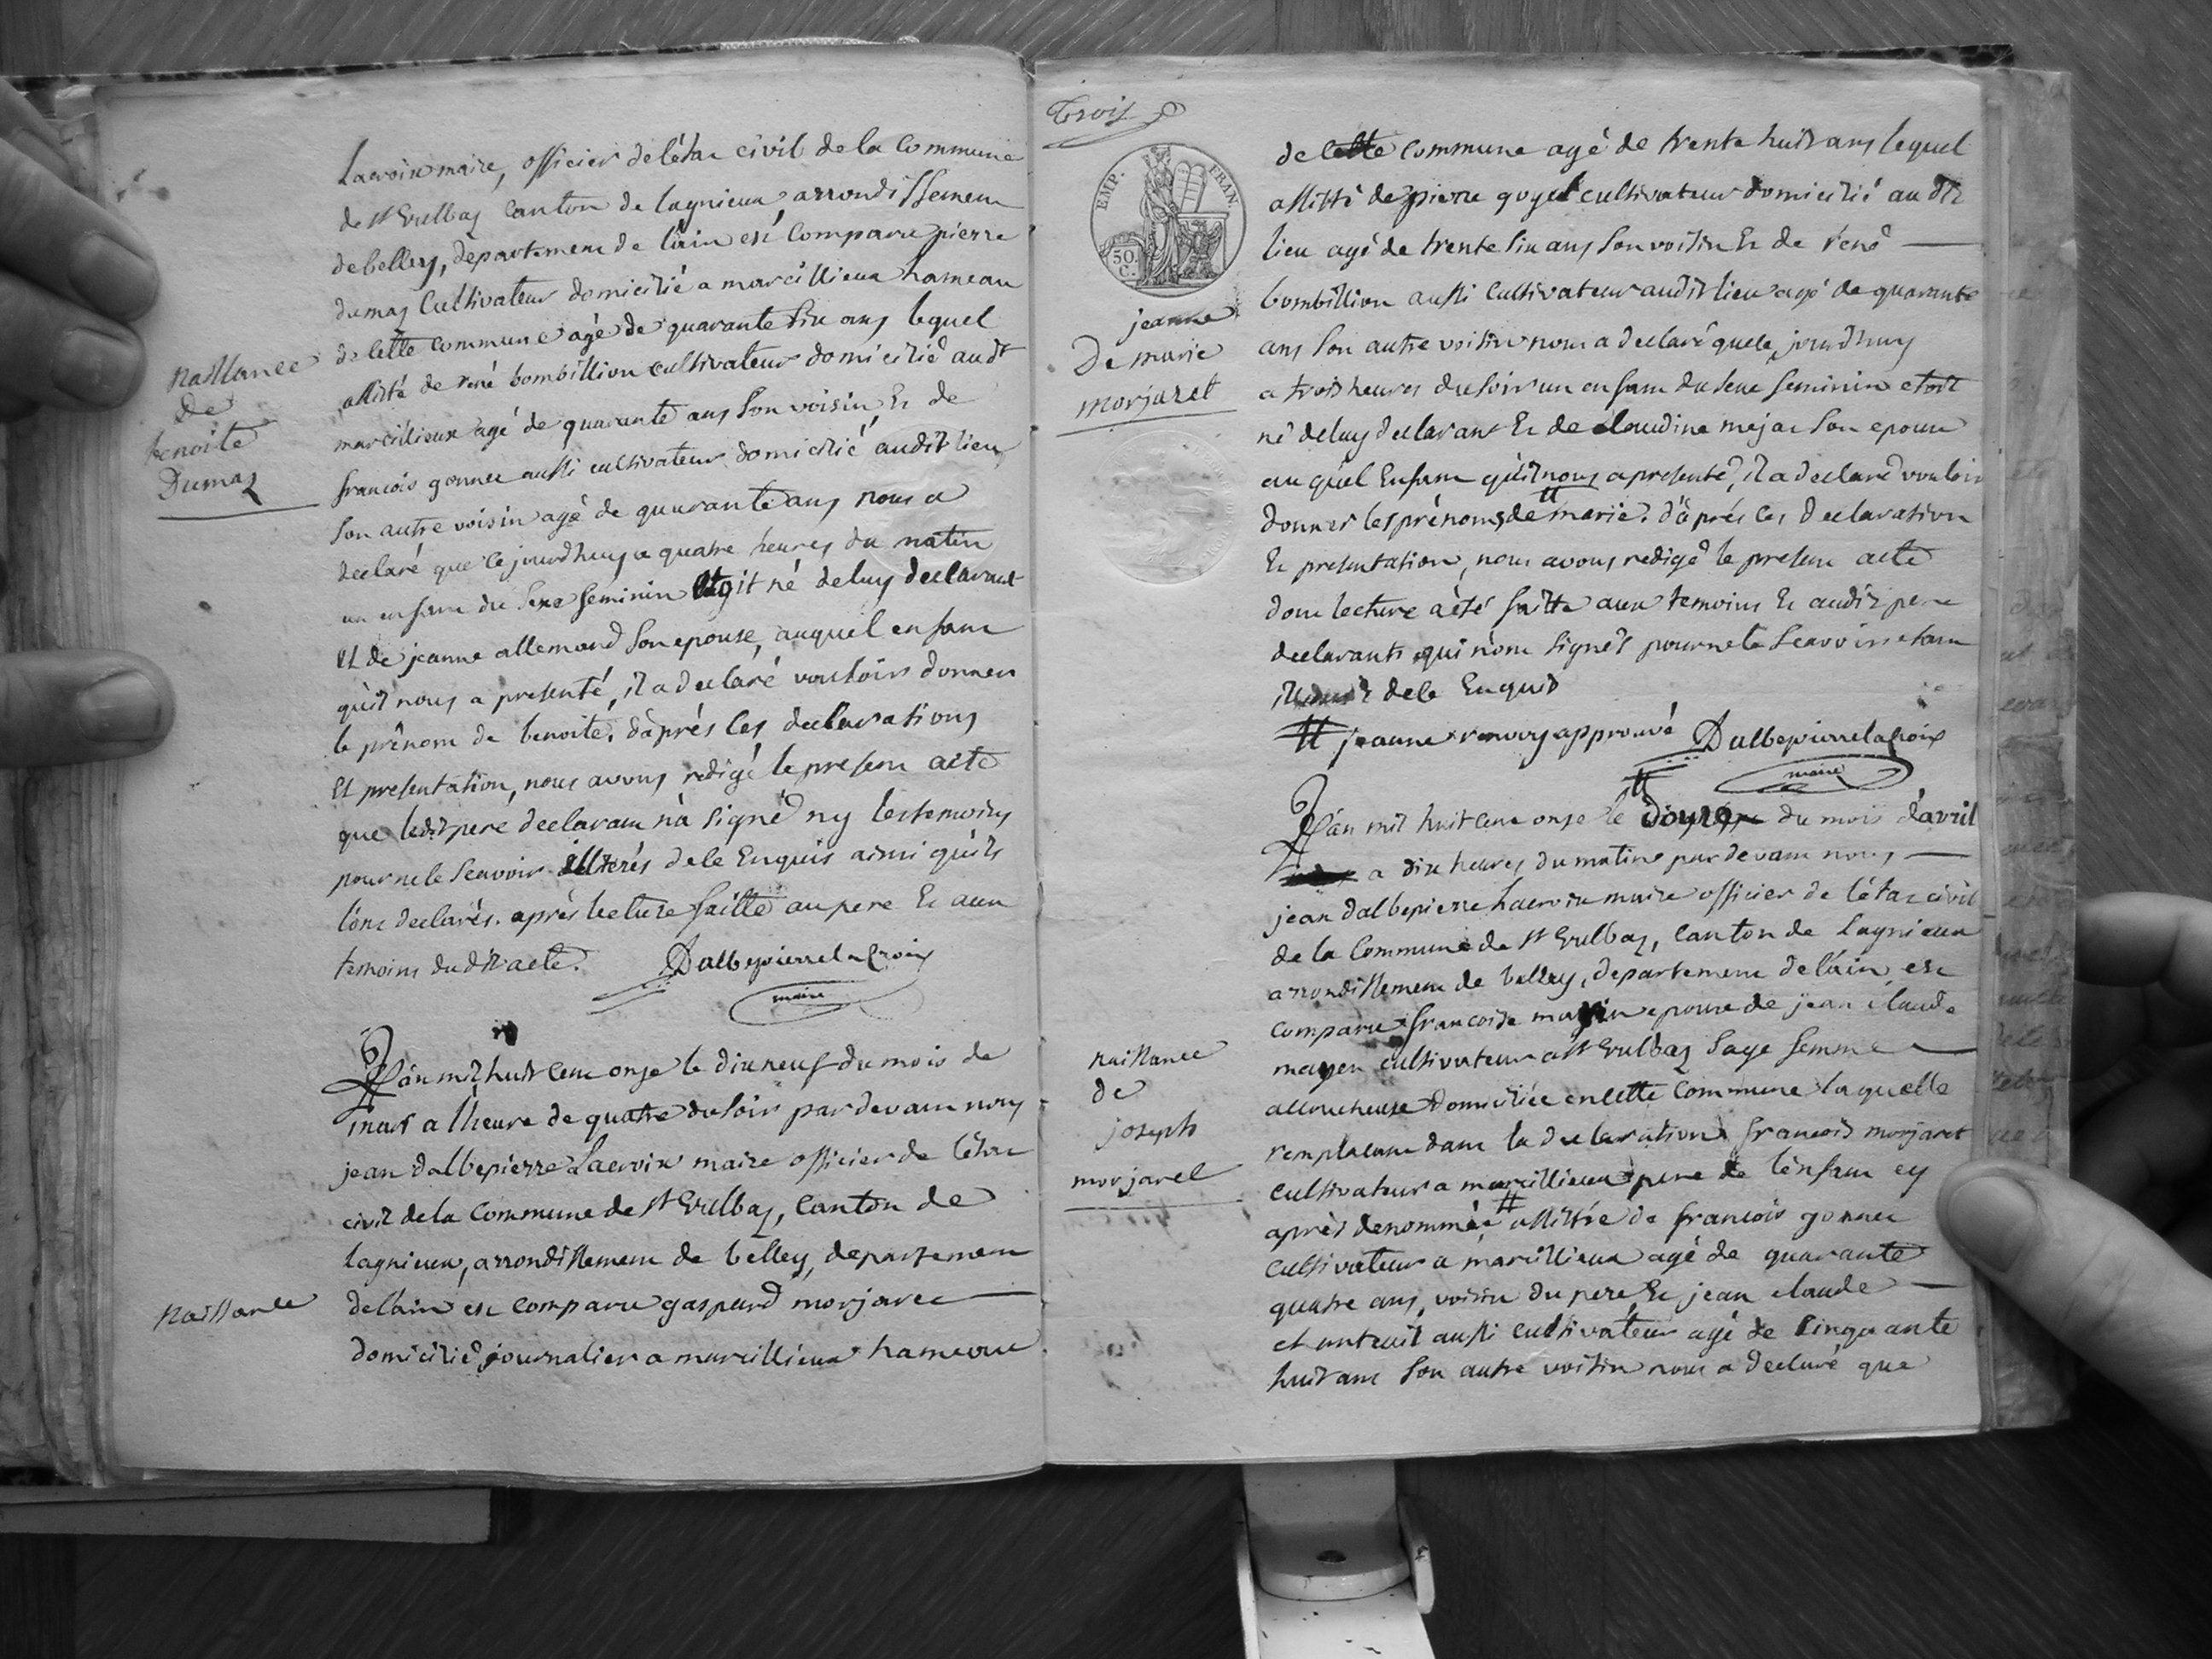 Lacroix maire, officier de létat civil de la Commune
de St Vulbas Canton de lagnieux, arrondissement
de belley, département de láin est Comparu pierre
dumas Cultivateur domicilié a marcillieux hameau
de cette commune agé de quarante six ans lequel
assisté de rené bombillion cultivateur domicilié audt
marcillieux agé de quarante ans son voisin Et de
francois gonnet aussi cultivateur domicilié audit lieu
son autre voisin agé de quarante ans nous a
declaré que ce jourdhuy a quatre heures du matin
un enfant du sexe feminin étoit né de luy declarant
et de jeanne allemand son epouse, auquel enfant
qu'il nous a presenté, il a declaré vouloir donner
le prénom de benoite. d'après ces declarations
Et presentation, nous avons redigé le present acte
que ledit pere declarant n'a signé ny les temoins
pour ne le sçavoir de ce Enquis ainsi qu'ils
l'ont declarés. après lecture faitte au pere Et aux
temoins dudit acte.
Dalbepierrelacroix
maire
naissance
de
benoite
Dumas
L'an mil huit cent onze le dix neuf du mois de
mars a l'heure de quatre du soir par devant nous
jean dalbepierre Lacroix maire officier de létat
civil de la Commune de St Vulbas, Canton de
lagnieux, arrondissement de belley, departement
de láin est comparu gaspard morjaret
domicilié journalier a marcillieux hameau
naissance
Trois
EMP. FRAN.
50. C.
jeanne
De marie
morjaret
de cette commune agé de trente huit ans lequel
assisté de pierre goyet cultivateur domicilié au dit
lieu agé de trente six ans son voisin Et de rené
bombillion aussi Cultivateur audit lieu agé de quarante
ans son autre voisin nous a declaré que ce jourdhuy
a trois heures du soir un enfant du sexe feminin etoit
né de luy declarant Et de Claudine son epouse
auquel Enfant qu'il nous a presenté, il a declaré vouloir
donner les prénoms de # marie. d'après ces declaration
Et presentation, nous avons redigé le present acte
dont lecture a été faitte aux temoins Et audit pere
declarants qui n'ont signés pour ne le sçavoir etant
de ce Enquis
# jeanne renvoy approuvé
Dalbepierrelacroix
maire
L'an mil huit cent onze le du mois d'avril
a dix heures du matin par devant nous
jean dalbepierre Lacroix maire officier de létat civil
de la Commune de St Vulbas, Canton de Lagnieux
arrondissement de belley, departement de láin est
comparu francoise epouse de jean claude
cultivateur a St Vulbas sage femme
accoucheuse domiciliée en cette commune laquelle
remplacant dans la declaration francois morjaret
cultivateur a marcillieux pere de l'enfant cy
après denommée # assistée de francois gonnet
cultivateur a marcillieux agé de quarante
quatre ans, voisin du pere, Et jean claude
aussi cultivateur agé de cinquante
huit ans son autre voisin nous a declaré que
naissance
de
joseph
morjaret